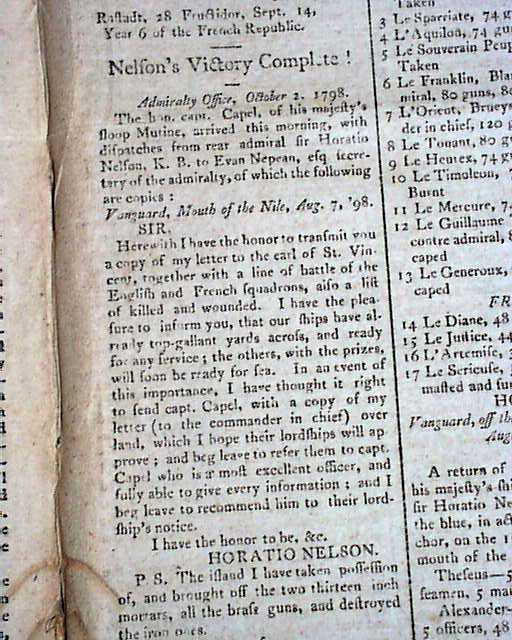 Rastadt, 28 Fructidor, Sept. 14,
Year 6 of the French Republic.
Nelson's Victory Complete !
Admiralty Office, October 2. 1798.
The hon. capt. Capel, of his majesty's
sloop Mutine, arrived this morning, with
dispatches from rear admiral sir Horatio
Nelson, K. B. to Evan Nepean, esq secre-
tary of the admiralty, of which the following
are copies :
Vanguard, Mouth of the Nile, Aug. 7, '98.
SIR,
Herewith I have the honor to transmit you
a copy of my letter to the earl of St. Vin-
cent, together with a line of battle of the
English and French squadrons, also a list
of killed and wounded. I have the plea-
sure to inform you, that our ships have al-
ready top-gallant yards across, and ready
for any service ; the others, with the prizes,
will soon be ready for sea. In an event of
this importance, I have thought it right
to send capt. Capel, with a copy of my
letter (to the commander in chief) over
land, which I hope their lordships will ap-
prove ; and beg leave to refer them to capt.
Capel who is a most excellent officer, and
fully able to give every information ; and I
beg leave to recommend him to their lord-
ship's notice.
I have the honor to be, &c.
HORATIO NELSON.
P. S. The island I have taken possession
of, and brought off the two thirteen inch
mortars, all the brass guns, and destroyed
the iron ones.
Taken
3 Le Spartiate, 74 g
4 L'Aquilon, 74 gu
5 Le Souverain Peup
Taken
6 Le Franklin, Blan
miral, 80 guns, 80
7 L'Orient, Brueys
der in chief, 120 g
8 Le Tonant, 80 gu
9 Le Heureux, 74 gu
10 Le Timoleon, 7
Burnt
11 Le Mercure, 74
12 Le Guillaume
contre admiral, 8
caped
13 Le Genereux,
caped
FR
14 Le Diane, 48
15 Le Justice, 44
16 L'Artemise, 3
17 Le Sericuse, 3
masted and sun
HO
Vanguard, off th
Aug
A return of
his majesty's shi
sir Horatio Ne
the blue, in act
chor, on the 1
mouth of the
Theseus—5
seamen, 5 mar
Alexander—
5 officers, 48